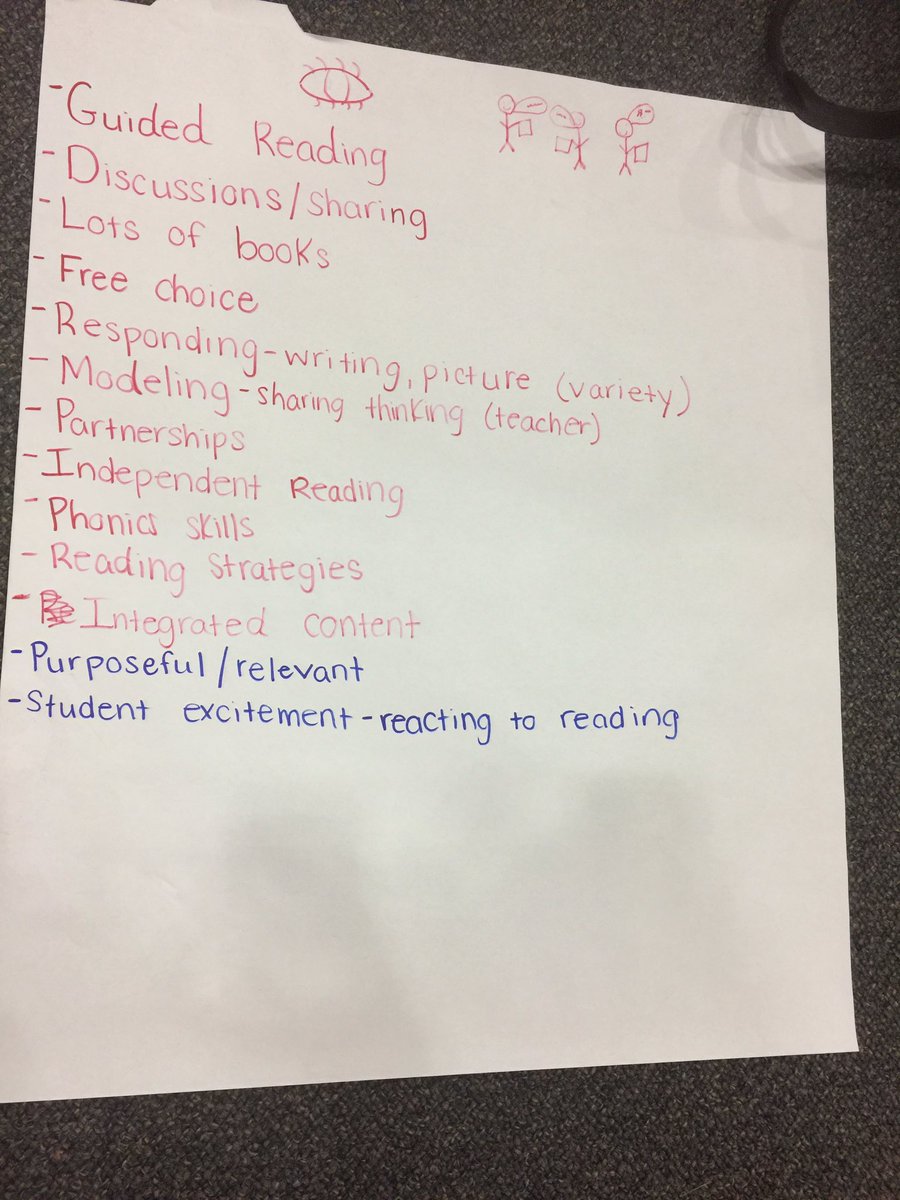 - Guided Reading
- Discussions/sharing
- Lots of books
- Free choice
- Responding - writing, picture (variety)
- Modeling - sharing thinking (teacher)
- Partnerships
- Independent Reading
- Phonics skills
- Reading strategies
- Integrated content
- Purposeful/relevant
- Student excitement - reacting to reading